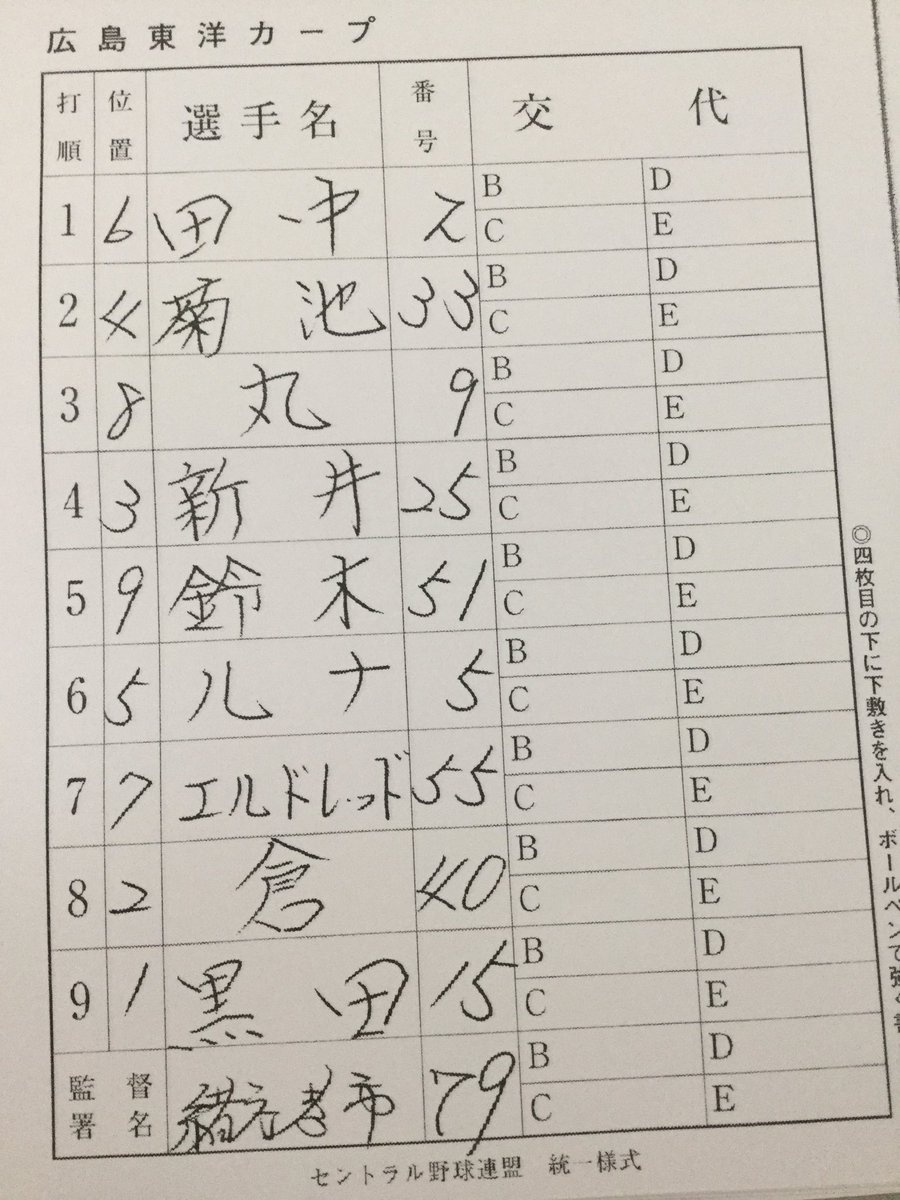 広島東洋カープ
打順 位置 選手名 番号 交代
1 6 田中 2 B D
C E
2 4 菊池 33 B D
C E
3 8 丸 9 B D
C E
4 3 新井 25 B D
C E
5 9 鈴木 51 B D
C E
6 5 ルナ 5 B D
C E
7 7 エルドレッド 55 B D
C E
8 2 倉 40 B D
C E
9 1 黒田 15 B D
C E
監督署名 緒方孝市 79 B D
C E
セントラル野球連盟 統一様式
◎四枚目の下に下敷きを入れ、ボールペンで強く書